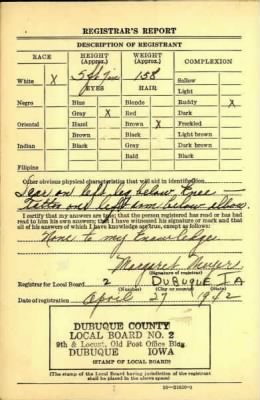 REGISTRAR'S REPORT
DESCRIPTION OF REGISTRANT
RACE HEIGHT (Approx.) WEIGHT (Approx.) COMPLEXION
White X 5 ft 9 in 158 Sallow
EYES HAIR Light
Negro Blue Blonde Ruddy X
Gray X Red Dark
Oriental Hazel Brown X Freckled
Brown Black Light brown
Indian Black Gray Dark brown
Bald Black
Filipino
Other obvious physical characteristics that will aid in identification
Scar on left leg below knee —
Tattoo on left arm below elbow.
I certify that my answers are true; that the person registered has read or has had
read to him his own answers; that I have witnessed his signature or mark and that
all of his answers of which I have knowledge are true, except as follows:
None to my knowledge
Margaret Meyers
(Signature of registrar)
Registrar for Local Board 2 DUBUQUE IA
Date of registration April 27 1942
DUBUQUE COUNTY
LOCAL BOARD NO. 2
9th & Locust, Old Post Office Bldg.
DUBUQUE IOWA
(STAMP OF LOCAL BOARD)
(The stamp of the Local Board having jurisdiction of the registrant
shall be placed in the above space)